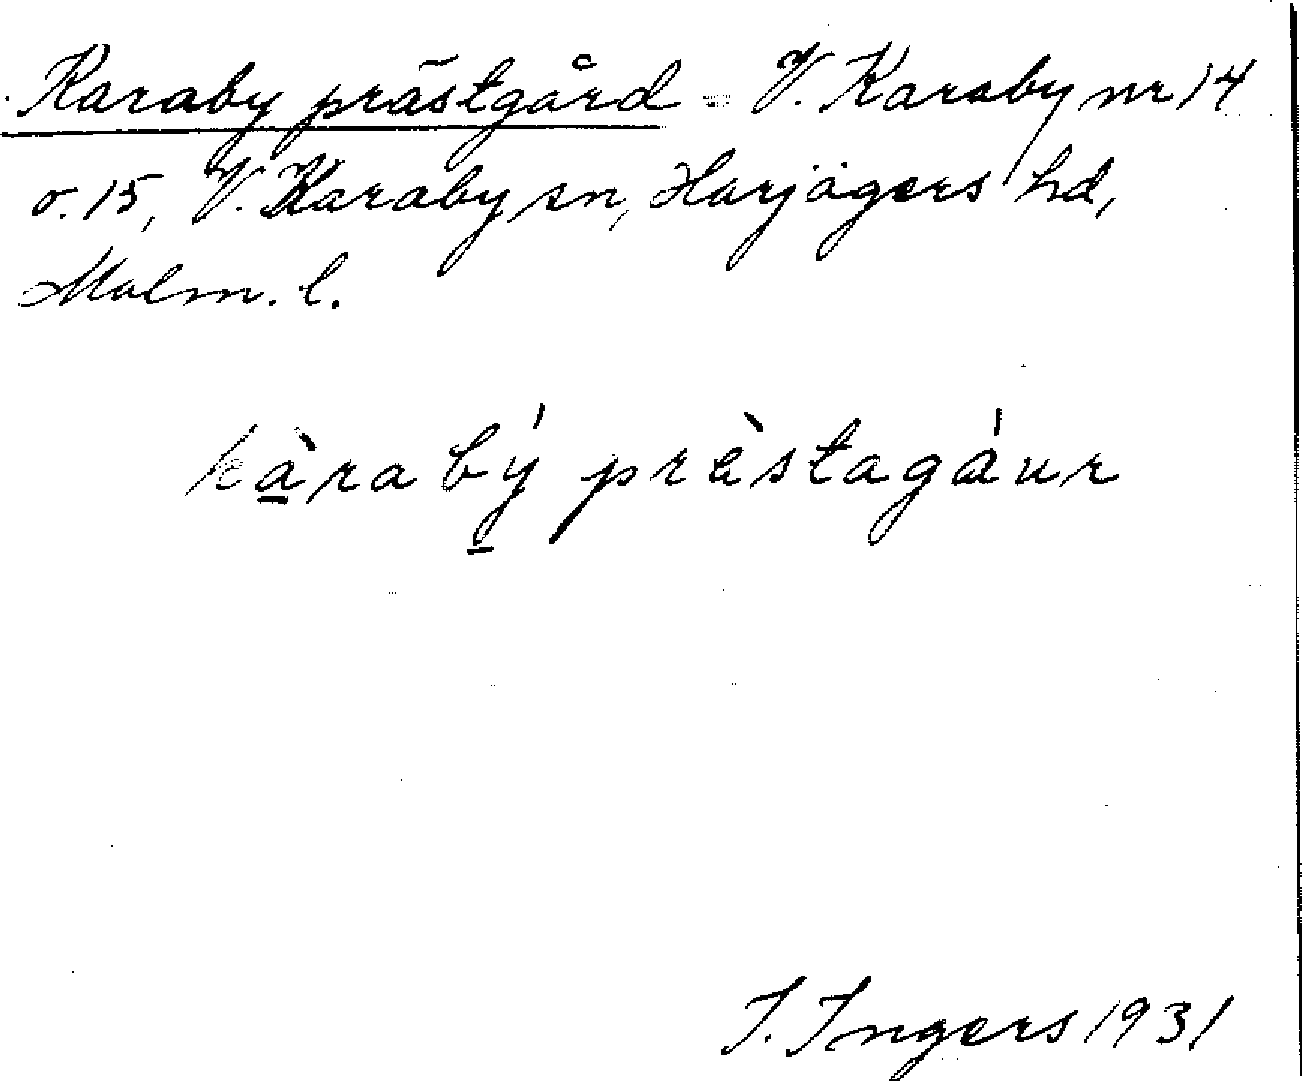 Karaby prästgård = V. Karaby nr 14
o. 15, V. Karaby sn, Harjagers hd,
Malm. l.
kà̱rabý̱ prèstagáur
I. Ingers 1931